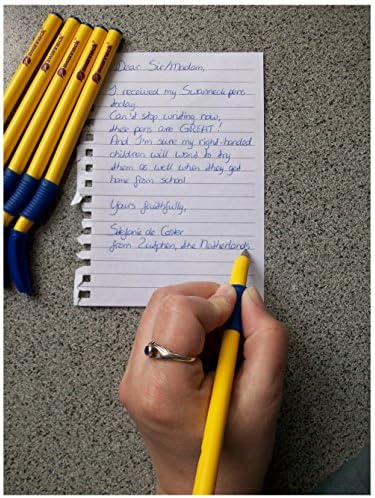 Dear Sir/Madam,
I received my Swanneck pens
today.
Can't stop writing now,
these pens are GREAT!
And I'm sure my right-handed
children will want to try
them as well when they get
home from school.
Yours faithfully,
Stefanie de Coster
from Zutphen, the Netherlands
swanneck
swanneck
swanneck
swanneck